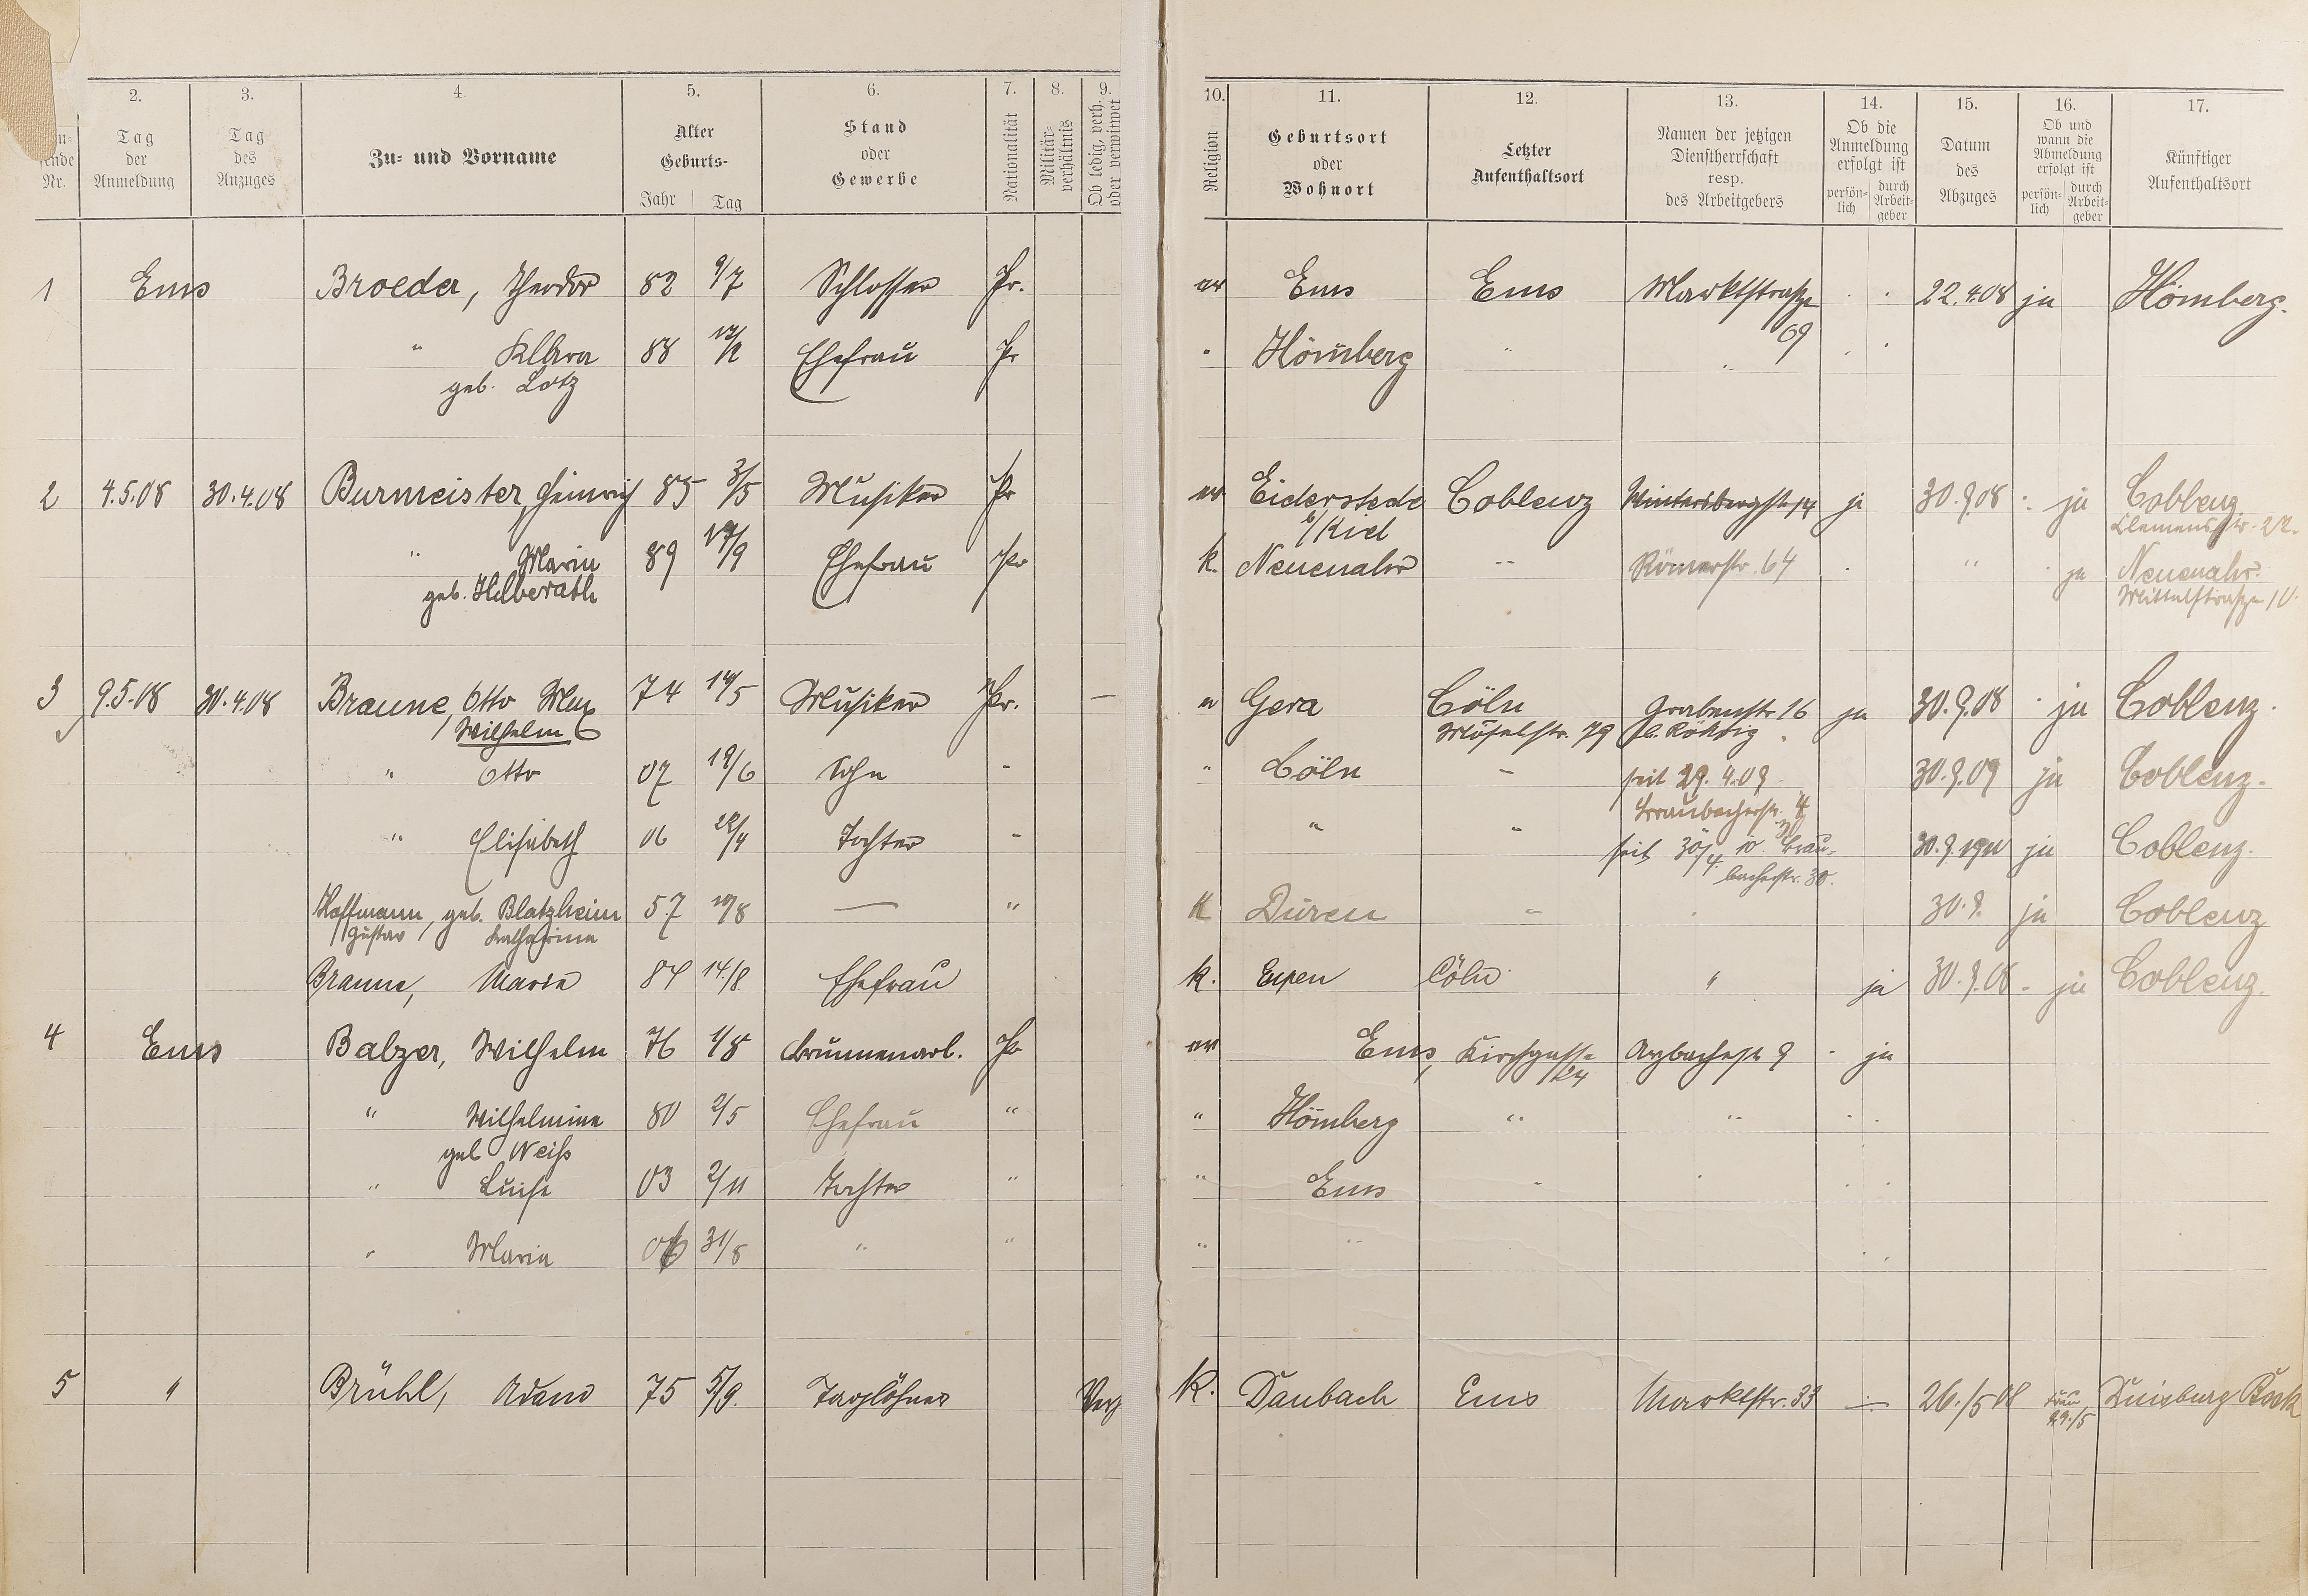 2. 3. 4. 5. 6. 7. 8. 9. 10. 11. 12. 13. 14. 15. 16. 17.
Nr.
Tag der Anmeldung
Tag des Anzuges
Zu- und Vorname
Alter
Geburts-
Jahr Tag
Stand oder Gewerbe
Nationalität
Militär-verhältnis
Ob ledig, verh. oder verwitwet
Religion
Geburtsort oder Wohnort
Letzter Aufenthaltsort
Namen der jetzigen Dienstherrschaft resp. des Arbeitgebers
Ob die Anmeldung erfolgt ist
persön-lich durch Arbeit-geber
Datum des Abzuges
Ob und wann die Abmeldung erfolgt ist
persön-lich durch Arbeit-geber
Künftiger Aufenthaltsort
1 Ems Broeder, Theodor 82 9/7 Schlosser Pr. ev Ems Ems Marktstraße 69 22.4.08 ja Hömberg.
" Klara 88 Ehefrau Pr " Hömberg "
geb. Lotz
2 4.5.08 30.4.08 Burmeister, Heinrich 85 3/5 Musiker Pr ev Eiderstede Coblenz Wintersbergstr 14 ja 30.9.08 ja Coblenz
b/Kiel Clemensstr. 22.
" Maria 89 17/9 Ehefrau Pr k. Neuenahr " Römerstr. 64 " ja Neuenahr.
geb. Helberath Mittelstraße 10.
3 9.5.08 30.4.08 Braune, Otto Max 74 14/5 Musiker Pr. — Gera Cöln Grabenstr. 16 ja 30.9.08 ja Coblenz.
Wilhelm Moselstr. 79
" Otto 07 19/6 Sohn - " Cöln - seit 29.4.09 30.9.09 ja Coblenz.
Braubacherstr. 4
" Elisabeth 06 28/4 Tochter - " " seit 30/4. 10. Brau- ja Coblenz.
bacherstr. 30.
Hoffmann, geb. Blatzheim 57 10/8 — " K Düren " 30.9. ja Coblenz
Gustav Katharina
Braune, Maria 84 14./8 Ehefrau k. Eupen Cöln " ja 30.9.08 - ja Coblenz.
4 Ems Balzer, Wilhelm 76 1/8 Brunnenarb. Pr ev Ems, Kirchgasse 24 Arzbacherstr 9 ja
" Wilhelmine 80 2/5 Ehefrau " " Hömberg " "
geb Weiß
" Luise 03 2/11 Tochter " " Ems
" Maria 06 31/8 " " " "
5 " Brühl, Adam 75 5/9. Taglöhner Verh K. Daubach Ems Marktstr. 33 26./5 08 Frau 29./5 Duisburg